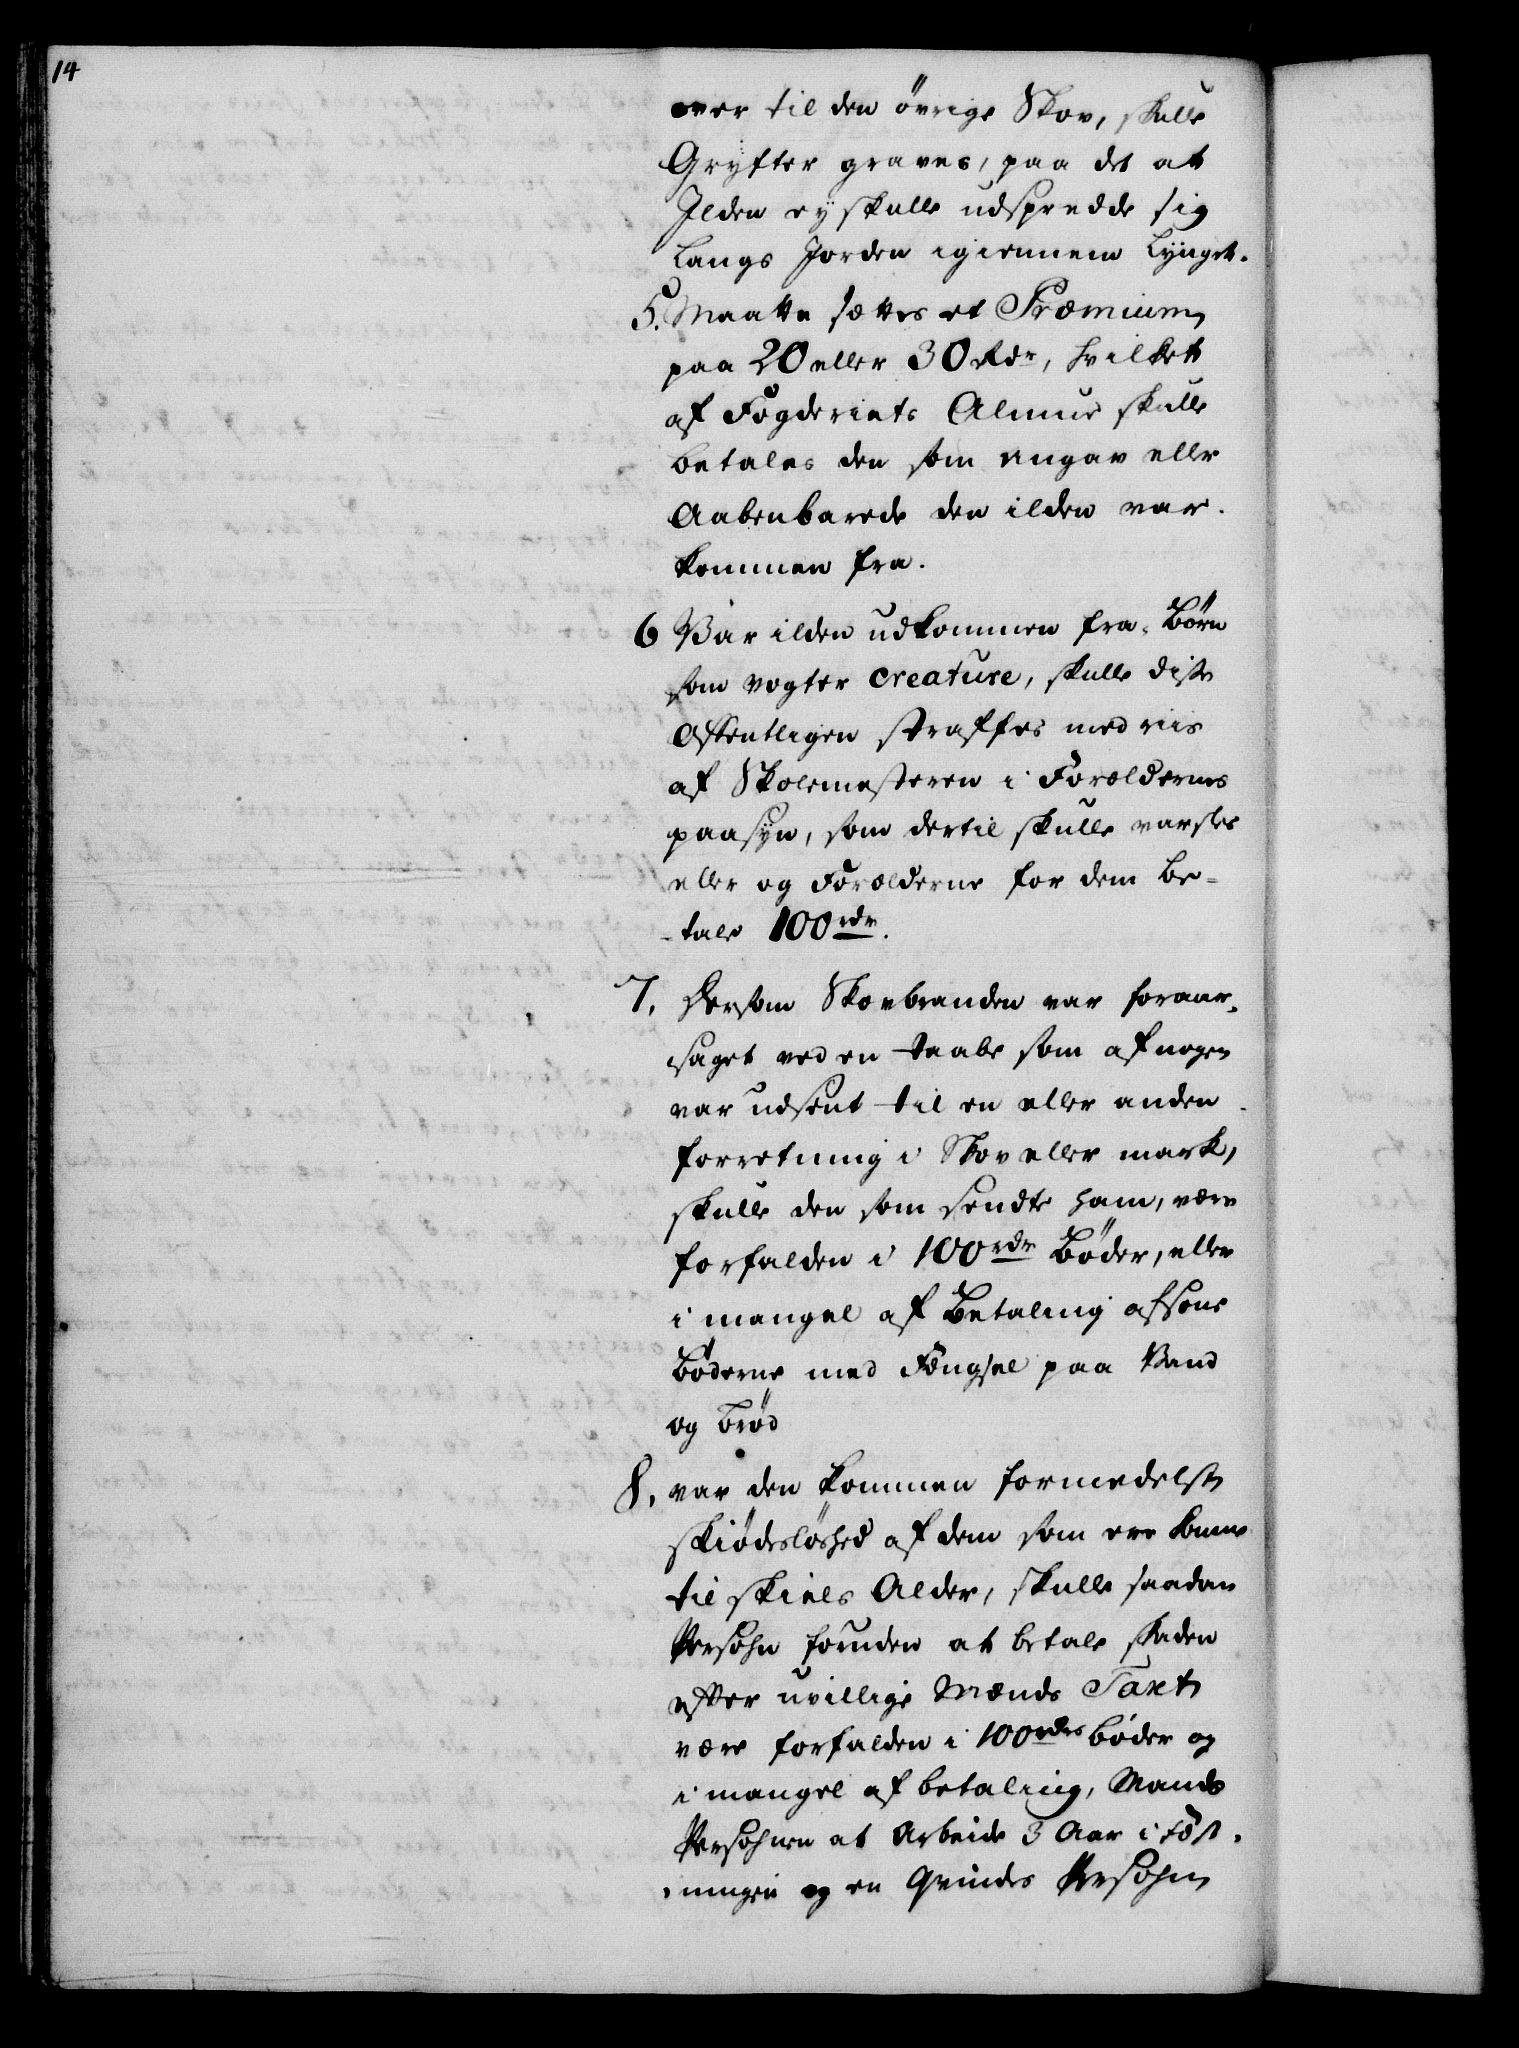 14
over til den övrige Skov, skulle
Gryfter graves, paa det at
Ilden ey skulle udspredde sig
langs Jorden igiennem Lynget.
5. Maatte sættes et Præmium
paa 20 eller 30 Rdr, hvilket
af Fogderiets Almue skulle
betales den som angav eller
Aabenbarede den ilden var
kommen fra.
6 Var ilden udkommen fra Börn
som vogter Creature, skulle disse
offentligen straffes med riis
af Skolemesteren i Forældernes
paasÿn, som dertil skulle varsles
eller og Forælderne for dem be-
-tale 100 rdr.
7. Dersom Skovbranden var foraar-
saget ved en taabe som af nogen
var udsent til en eller anden
forretning i Skov eller mark,
skulle den som sendte ham, være
forfalden i 100 rdr Böder, eller
i mangel af Betaling afsone
Böderne med Fængsel paa Vand
og Bröd
8. var den kommen formedelst
skiödeslöshed af dem som ere komne
til skiels Alder, skulle saadan
Persohn foruden at betale skaden
efter uvillige Mænds Taxt
være forfalden i 100 rdrs böder og
i mangel af betaling, Mands
Persohnen at Arbeide 3 Aar i Fæst-
ningen og en Qvindes Persohn